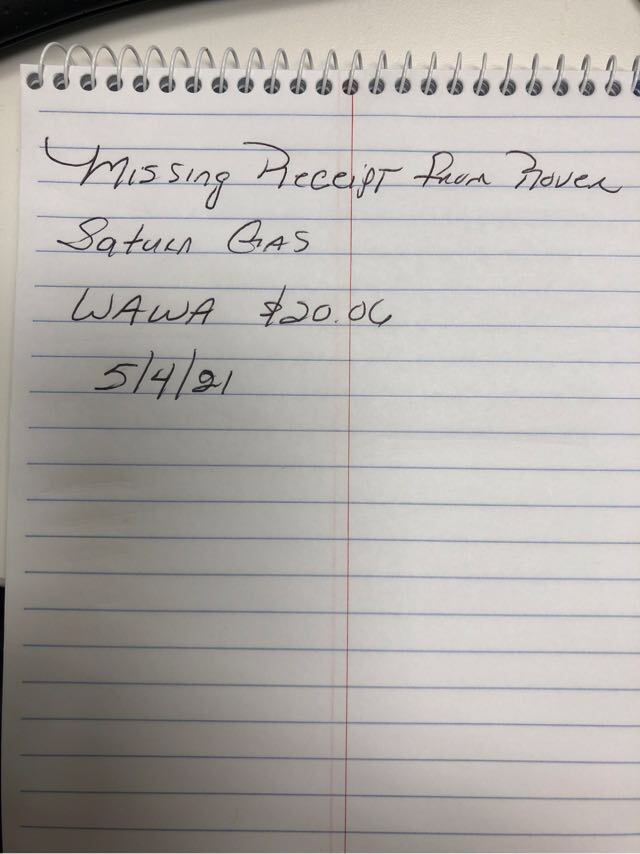 Missing Receipt From Rover
Saturn GAS
WAWA $20.06
5/4/21